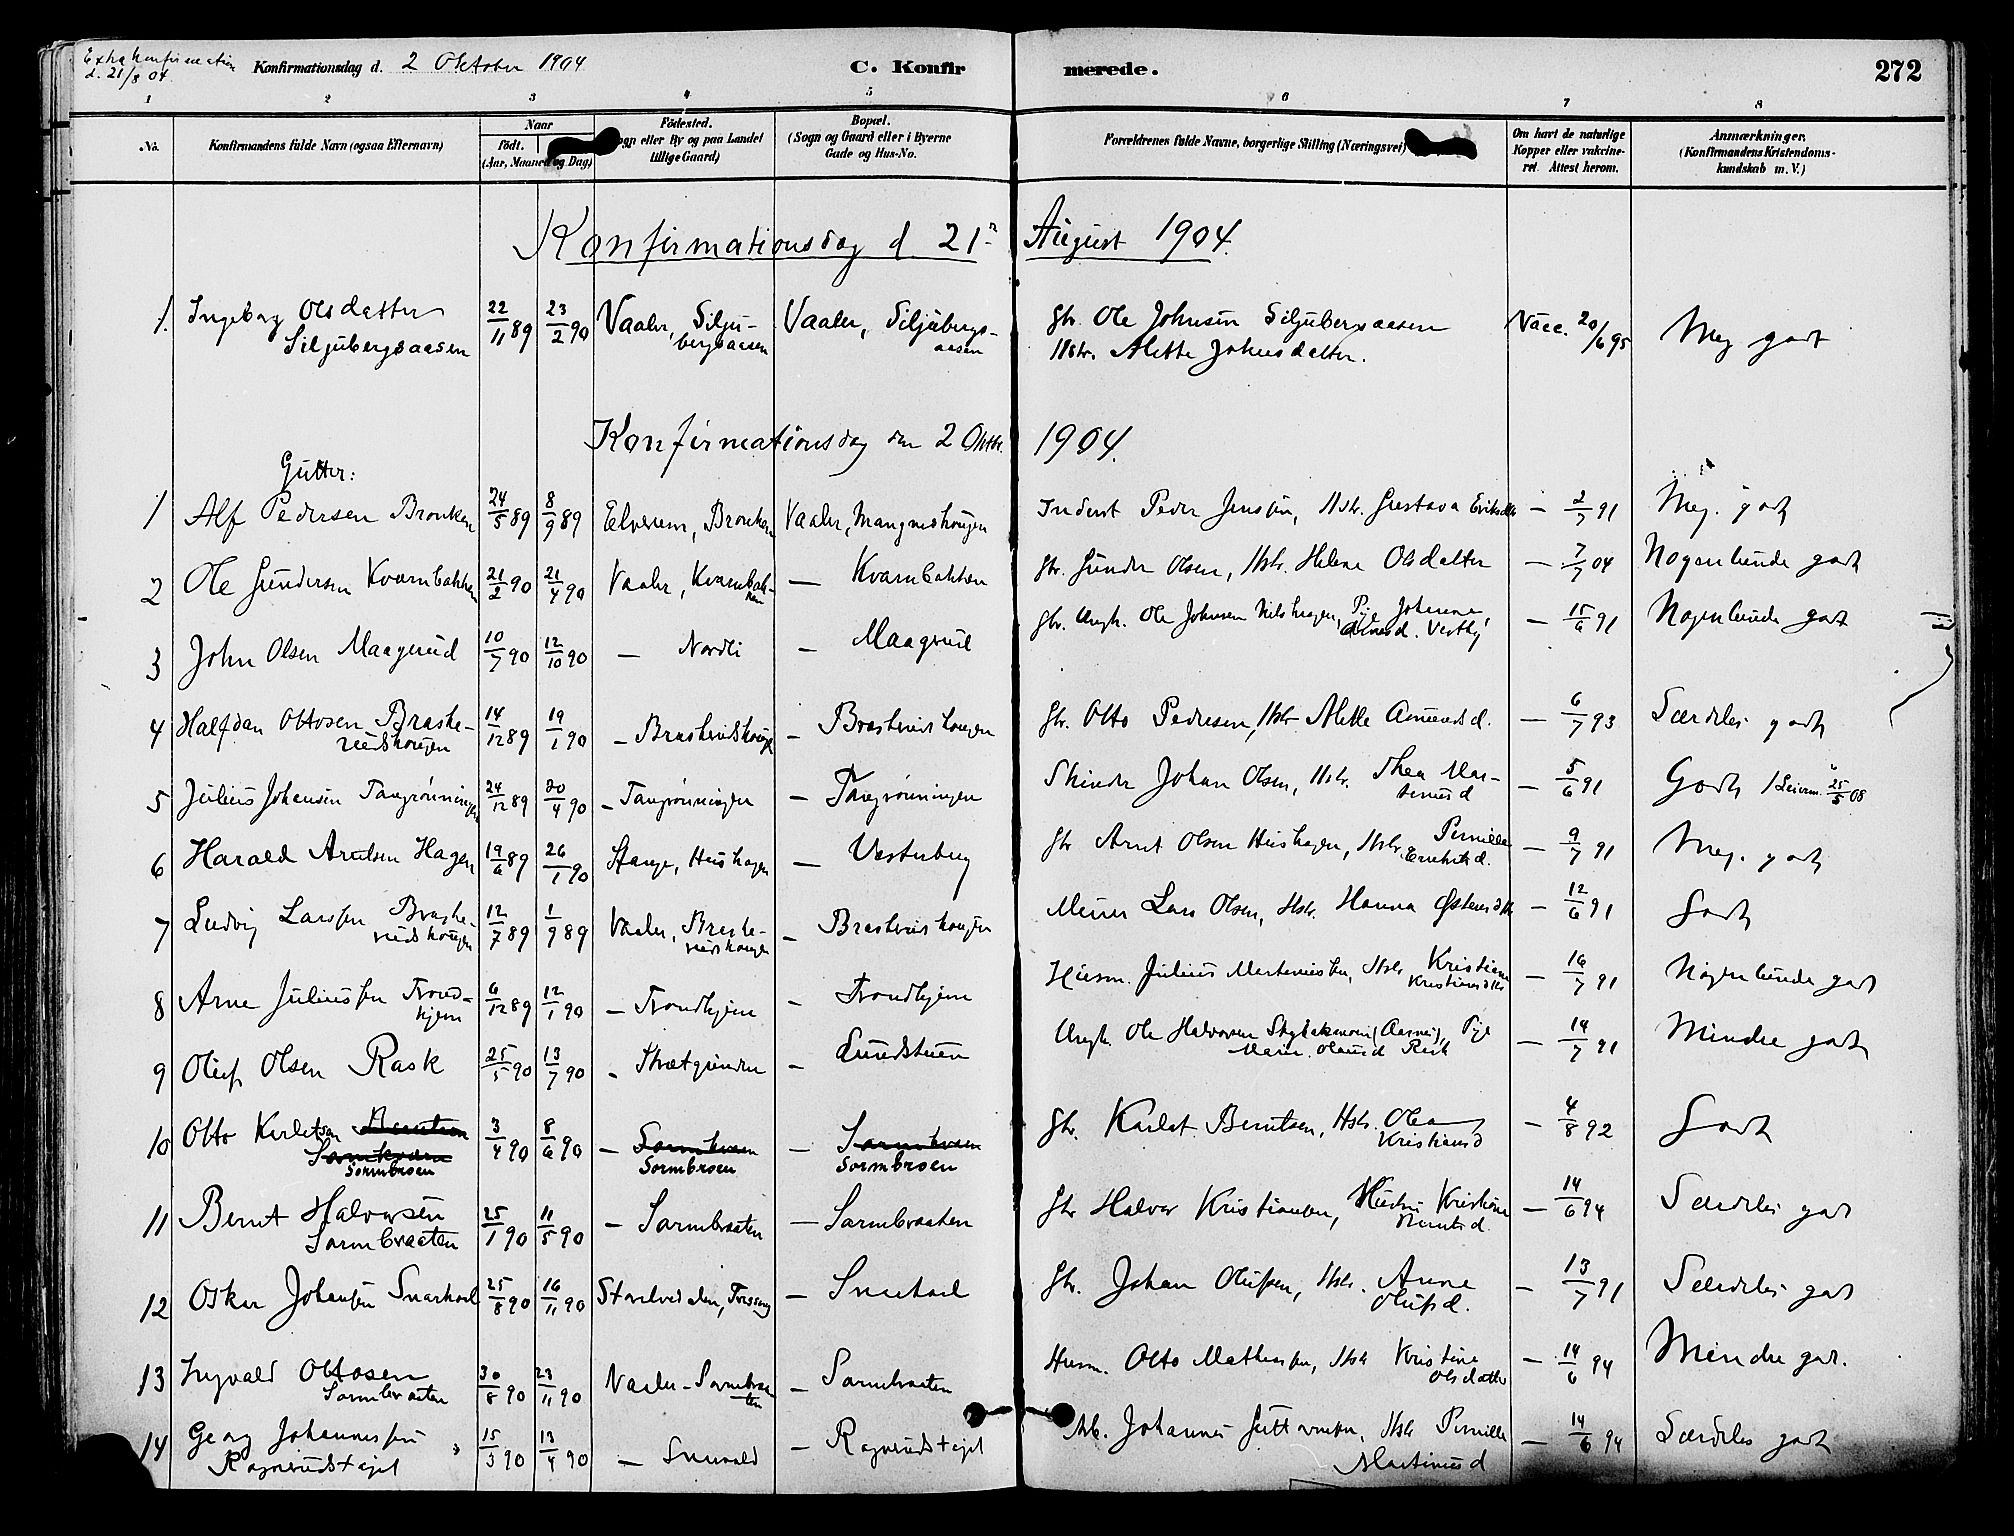 Extra Konfirmation
d. 21/8 04.
Konfirmationsdag d. 2 Oktober 1904
C. Konfirmerede.
272
1 2 3 4 5 6 7 8
No.
Konfirmandens fulde Navn (ogsaa Efternavn)
Naar
født.
(Aar, Maaned og Dag)
Fødested.
Sogn eller By og paa Landet
tillige Gaard)
Bopæl.
(Sogn og Gaard eller i Byerne
Gade og Hus-No.
Forældrenes fulde Navne, borgerlige Stilling (Næringsvei)
Om havt de naturlige
Kopper eller vakcine-
ret. Attest herom.
Anmærkninger.
(Konfirmandens Kristendoms-
kundskab m. V.)
Konfirmationsdag d. 21. August 1904.
1. Ingeborg Olsdatter 22/11 89 23/2 90 Vaaler, Silju- Vaaler, Siljubergs- Gbr. Ole Johnsen Siljubergsaasen Vacc. 20/6 95 Meg godt
Siljubergsaasen bergsaasen aasen Hstr. Mette Johnsdatter.
Konfirmationsdag den 2 Oktbr. 1904.
Gutter:
1 Alf Pedersen Bronken 24/5 89 8/9 89 Elverum, Bronken Vaaler, Mangneshougen Inderst Peder Jensen, Hstr. Gustava Eriksdtr — 2/7 91 Meg. godt
2 Ole Gundersen Kvarnbakken 21/2 90 21/4 90 Vaaler, Kvarnbak- — Kvarnbakken Gbr. Gunder Olsen, Hstr. Helene Olsdatter — 7/7 04 Nogenlunde godt
ken
3 John Olsen Maagerud 10/7 90 12/10 90 — Nordli — Maagerud Gbr. Ungk. Ole Johnsen Nilshagen, Pige Johanne — 15/6 91 Nogenlunde godt
Vestby
4 Halfdan Ottosen Braske- 14/12 89 19/1 90 — Braskerudshougen — Braskerudshougen Gbr. Otto Pedersen, Hstr. Mette Amundsd. — 6/7 93 Særdeles godt
rudshougen
5 Julius Johansen Tangrønningen 24/12 89 20/4 90 — Tangrønningen — Tangrønningen Skinder Johan Olsen, Hstr. Thea Mar- — 5/6 91 Godt 25/5 08
tinusd
6 Harald Arntsen Hagen 19/6 89 26/1 90 Stange, Hushagen — Vesterberg Gbr Arnt Olsen Hushagen, Hstr. Pernille — 9/7 91 Meg. godt
7 Ludvig Larssen Braske- 12/7 89 1/9 89 Vaaler, Braske- — Braskerudshougen Murer Lars Olsen, Hstr. Hanna — 12/6 91 Godt
rudshougen rudshougen
8 Arne Juliussen Trond- 6/12 89 12/1 90 — Trondhjem — Trondhjem Husm. Julius Martinussen, Hstr Kristiane — 16/7 91 Nogenlunde godt
hjem Kristiansdtr
9 Oluf Olsen Rask 25/5 90 13/7 90 — Skrætgunden — Lundstuen Ungk. Ole Halvorsen (Aasnes), Pige — 14/7 91 Mindre godt
Marie Rask
10 Otto Karlstsen 3/4 90 8/6 90 — Sormkvern — Sormkvern Gbr. Karlst. Berntsen, Hstr. Olea — 4/8 92 Godt
Sormbroen Sormbroen Sormbroen Kristiansd
11 Bernt Halvorsen 25/1 90 11/5 90 — Sormbraaten — Sormbraaten Gbr Halvor Kristiansen, Hustru Kristiane — 14/6 94 Særdeles godt
Sormbraaten Berntsd.
12 Oskar Johansen Snarhoel 25/8 90 16/11 90 — Gbr. Johan Olufsen, Hstr. Anne — 13/7 91 Særdeles godt
Olufsd.
13 Ingvald Ottosen 30/8 90 23/11 90 Vaaler - Sormbraa — Sormbraaten Husm. Otto Mathiassen, Hstr Kristine — 14/6 94 Mindre godt.
Sormbraaten ten Olsdatter
14 Georg Johannessen 15/3 90 13/4 90 — Snevold — Ragnerudstajet Arb. Johannes Guttormsen, Hstr Pernille — 14/6 94 Særdeles godt
Ragnerudstajet Martinusd